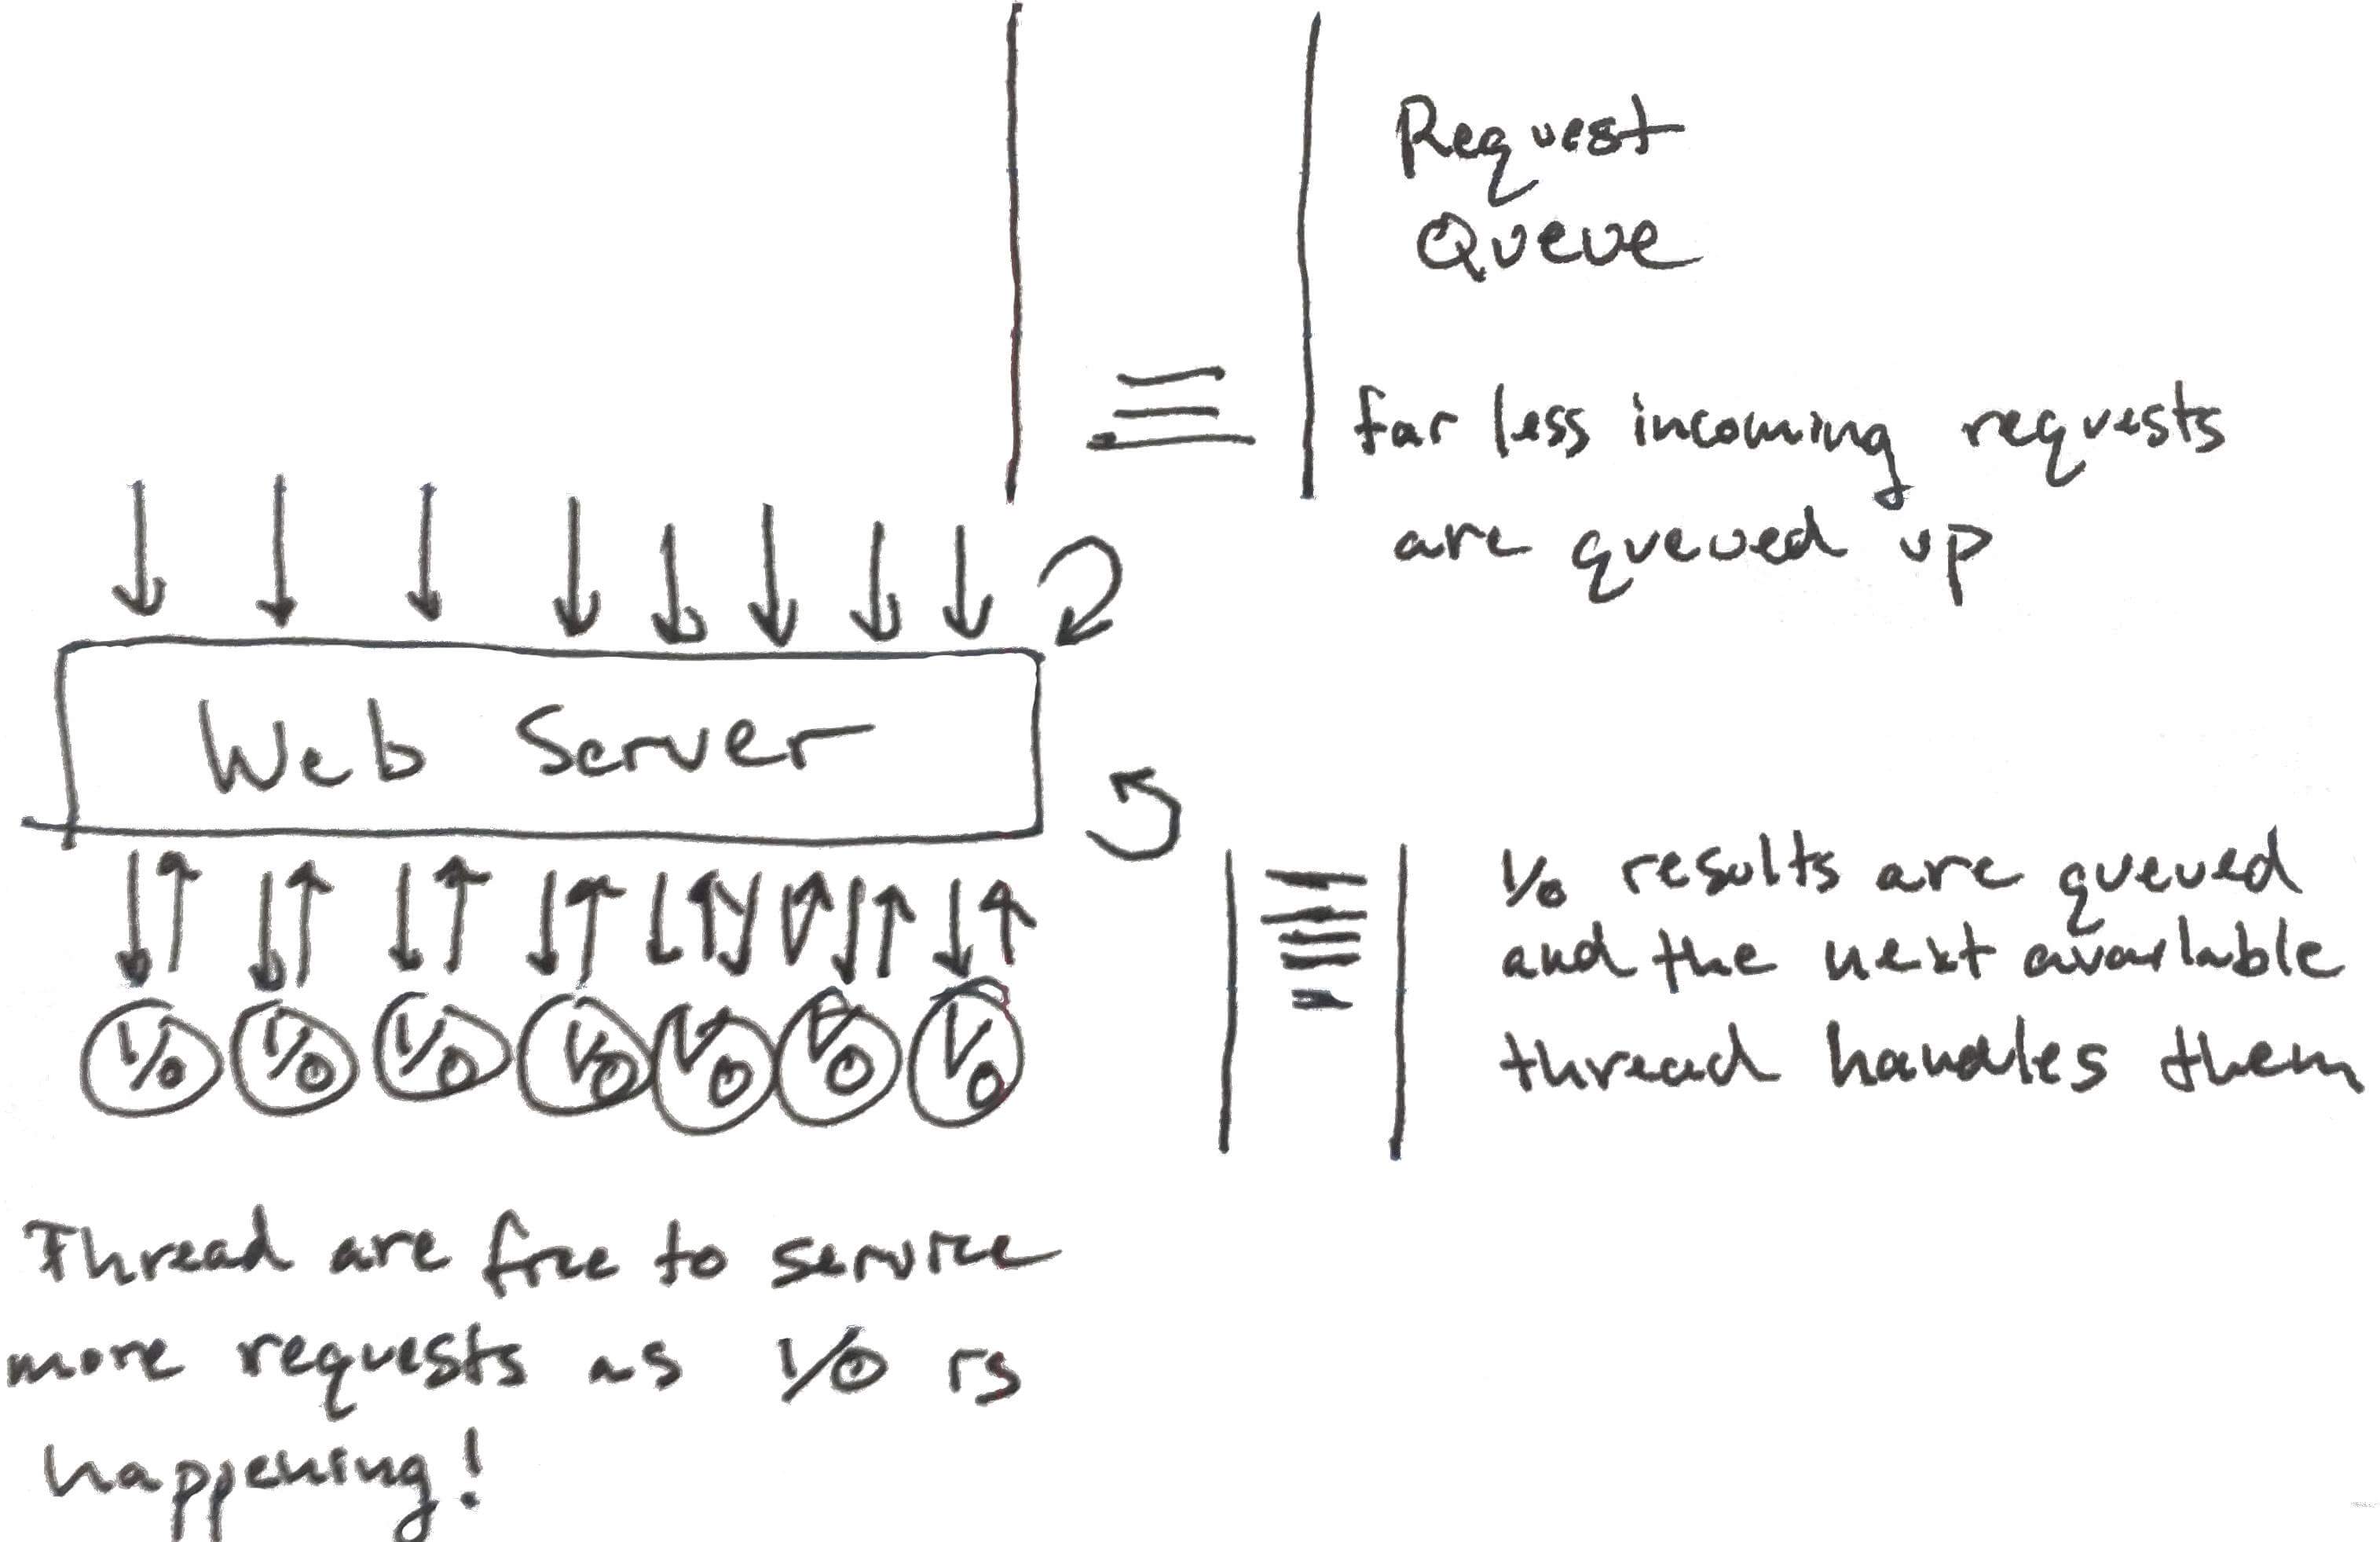 Request
Queue
far less incoming requests
are queued up
Web Server
I/O results are queued
and the next available
thread handles them
I/O I/O I/O I/O I/O I/O I/O
Thread are free to service
more requests as I/O is
happening!